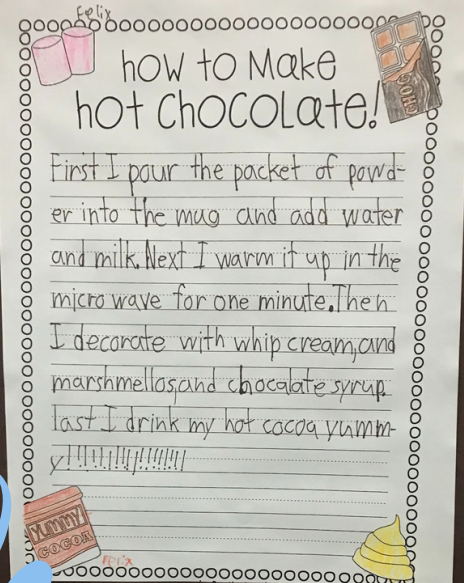 Felix
how to Make
hot Chocolate!
CHOC
First I pour the packet of powd-
er into the mug and add water
and milk. Next I warm it up in the
microwave for one minute. Then
I decorate with whip cream, and
marshmellos, and chocalate syrup.
last I drink my hot cocoa yumm-
y!!!!!!!!!!!!!!!!
YUMMY
COCOA
Felix